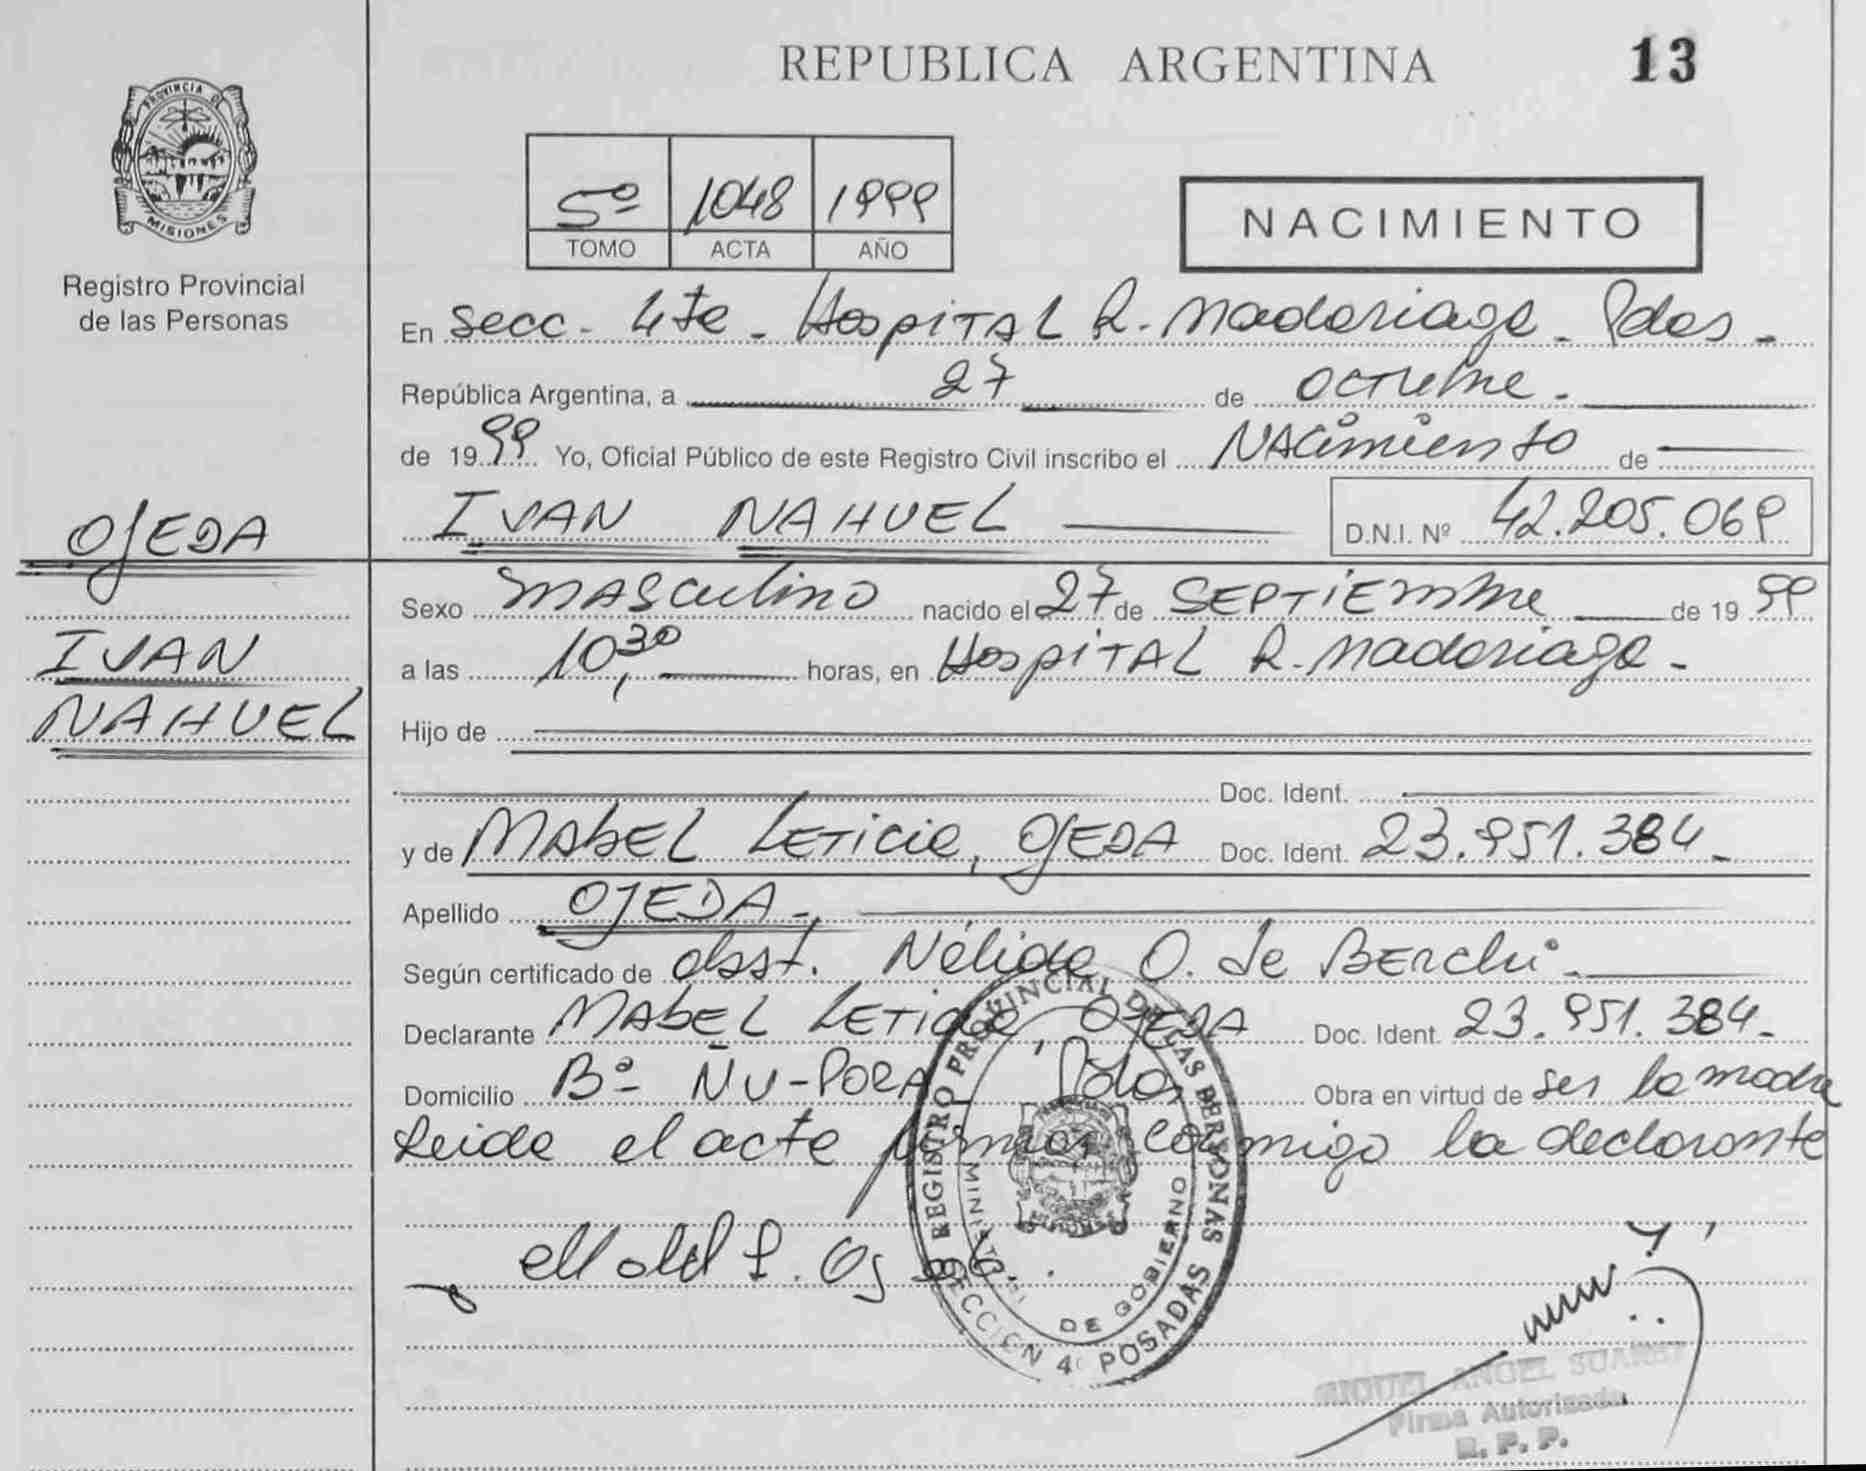 REPUBLICA ARGENTINA
13
PROVINCIA DE
MISIONES
Registro Provincial
de las Personas
5º 1048 1999
TOMO ACTA AÑO
NACIMIENTO
En Secc. 4ta. Hospital R. Madariaga. Pdas.
República Argentina, a 27 de octubre.
de 1999 Yo, Oficial Público de este Registro Civil inscribo el NAcimiento de
IVAN NAHUEL D.N.I. Nº 42.205.069
OJEDA
IVAN
NAHUEL
Sexo MASculino nacido el 27 de SEPTiEmbre de 1999
a las 10,30 horas, en HospiTAL R. Madariaga.
Hijo de
Doc. Ident.
y de MAbEL LETicia, OJEDA Doc. Ident. 23.951.384.
Apellido OJEDA.
Según certificado de obst. Nélida O. de BERchi.
Declarante MAbEL LETicia, OJEDA Doc. Ident. 23.951.384.
Domicilio Bº ÑU-PORA, Pdas. Obra en virtud de ser la madre
Leida el acta firman conmigo la declarante
REGISTRO PROVINCIAL DE LAS PERSONAS
DE GOBIERNO
SECCION 4 POSADAS
MIGUEL ANGEL SUAREZ
Firma Autorizada
R. P. P.